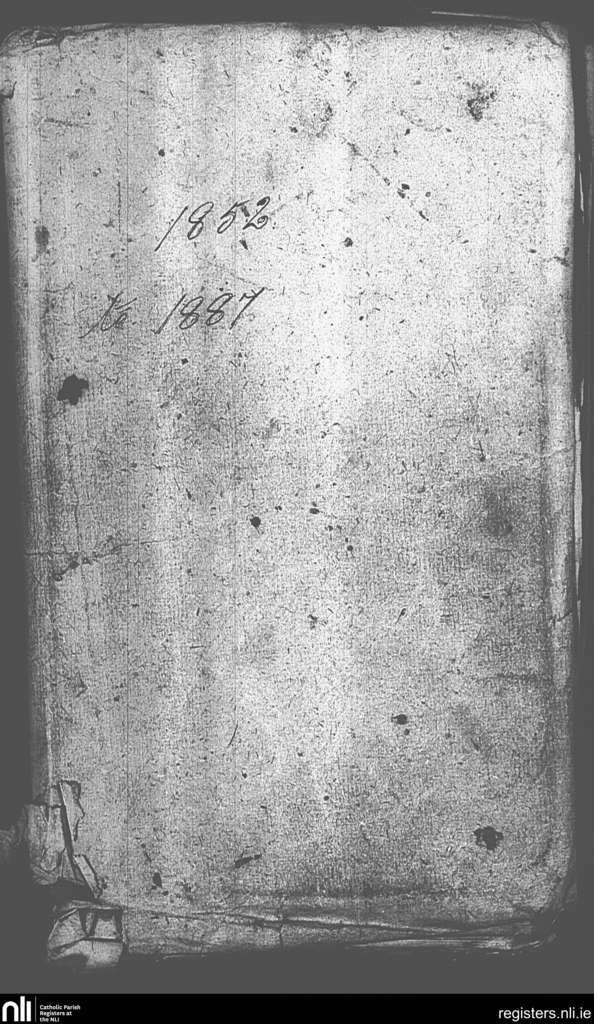 1852
to 1887
nli
Catholic Parish
Registers at
the NLI
registers.nli.ie